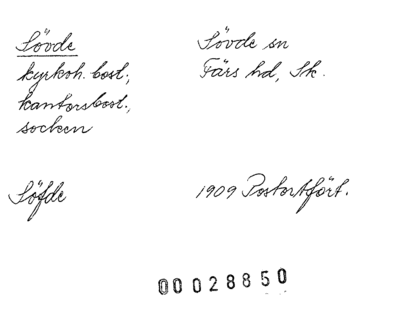 Sövde
kyrkoh. bost.,
kantorsbost.,
socken
Sövde sn
Färs hd, Sk.
Söfde
1909 Postortfört.
00028850